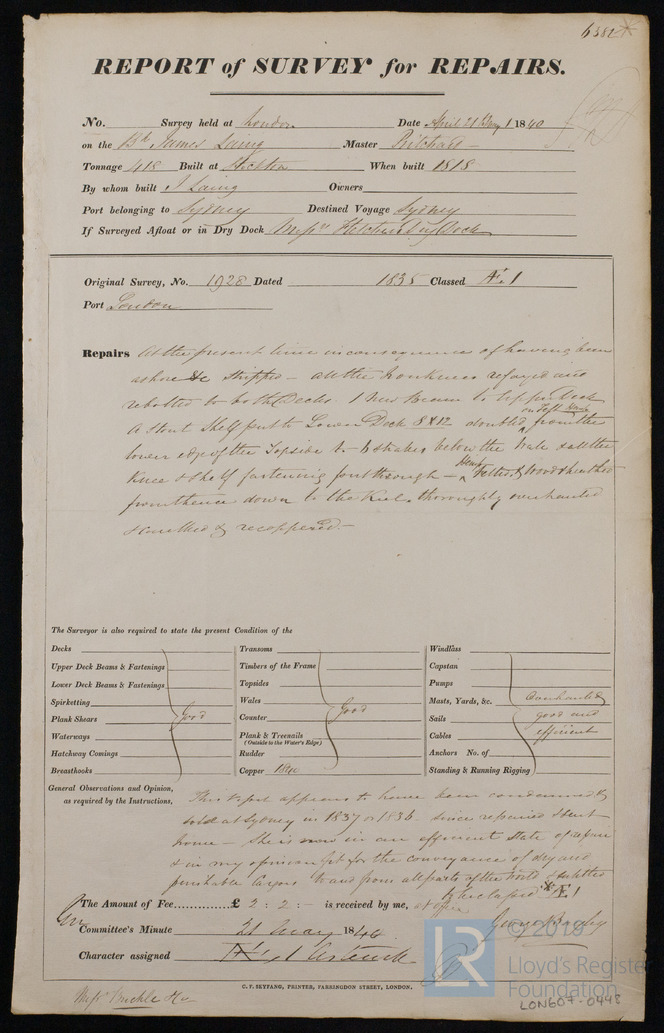 6382
REPORT of SURVEY for REPAIRS.
No. Survey held at London Date April 21 May 1 1840
on the Bk James Laing Master Pritchard
Tonnage 418 Built at Stockton When built 1818
By whom built J Laing Owners
Port belonging to Sydney Destined Voyage Sydney
If Surveyed Afloat or in Dry Dock Messrs Fletchers Dry Dock
Original Survey, No. 1928 Dated 1835 Classed Æ 1
Port London
Repairs At the present time in consequence of having been
ashore &c stripped - all the Iron knees refayed and
rebolted to both Decks. 1 New Beam to Upper Deck
A Stout Shelf put to Lower Deck 8 X 12 doubled from the
lower edge of the Topside to 6 strakes below the Wale & all the
Knee & Shelf fastening put through - Felted & Wood sheathed
from thence down to the Keel thoroughly overhauled
& caulked & recoppered. -
The Surveyor is also required to state the present Condition of the
Decks
Upper Deck Beams & Fastenings
Lower Deck Beams & Fastenings
Spirketting
Plank Shears
Waterways
Hatchway Comings
Breasthooks
Good
Transoms
Timbers of the Frame
Topsides
Wales
Counter
Plank & Treenails
(Outside to the Water's Edge)
Rudder
Copper 1840
Good
Windlass
Capstan
Pumps
Masts, Yards, &c.
Sails
Cables
Anchors No. of
Standing & Running Rigging
Overhauled
good and
efficient
General Observations and Opinion,
as required by the Instructions,
This vessel appears to have been condemned &
sold at Sydney in 1837 or 1836 since repaired & sent
home - She is now in an efficient state of repair
& in my opinion fit for the conveyance of dry and
perishable cargoes to and from all parts of the World & entitled
to be classed Æ 1
The Amount of Fee............... £ 2 : 2 : - is received by me,
Committee's Minute 21 May 1840
Character assigned Æ 1
C. F. SEYFANG, PRINTER, FARRINGDON STREET, LONDON.
Messrs Buckle & Co
© 2019
LR
Lloyd's Register
Foundation
LON607-0448